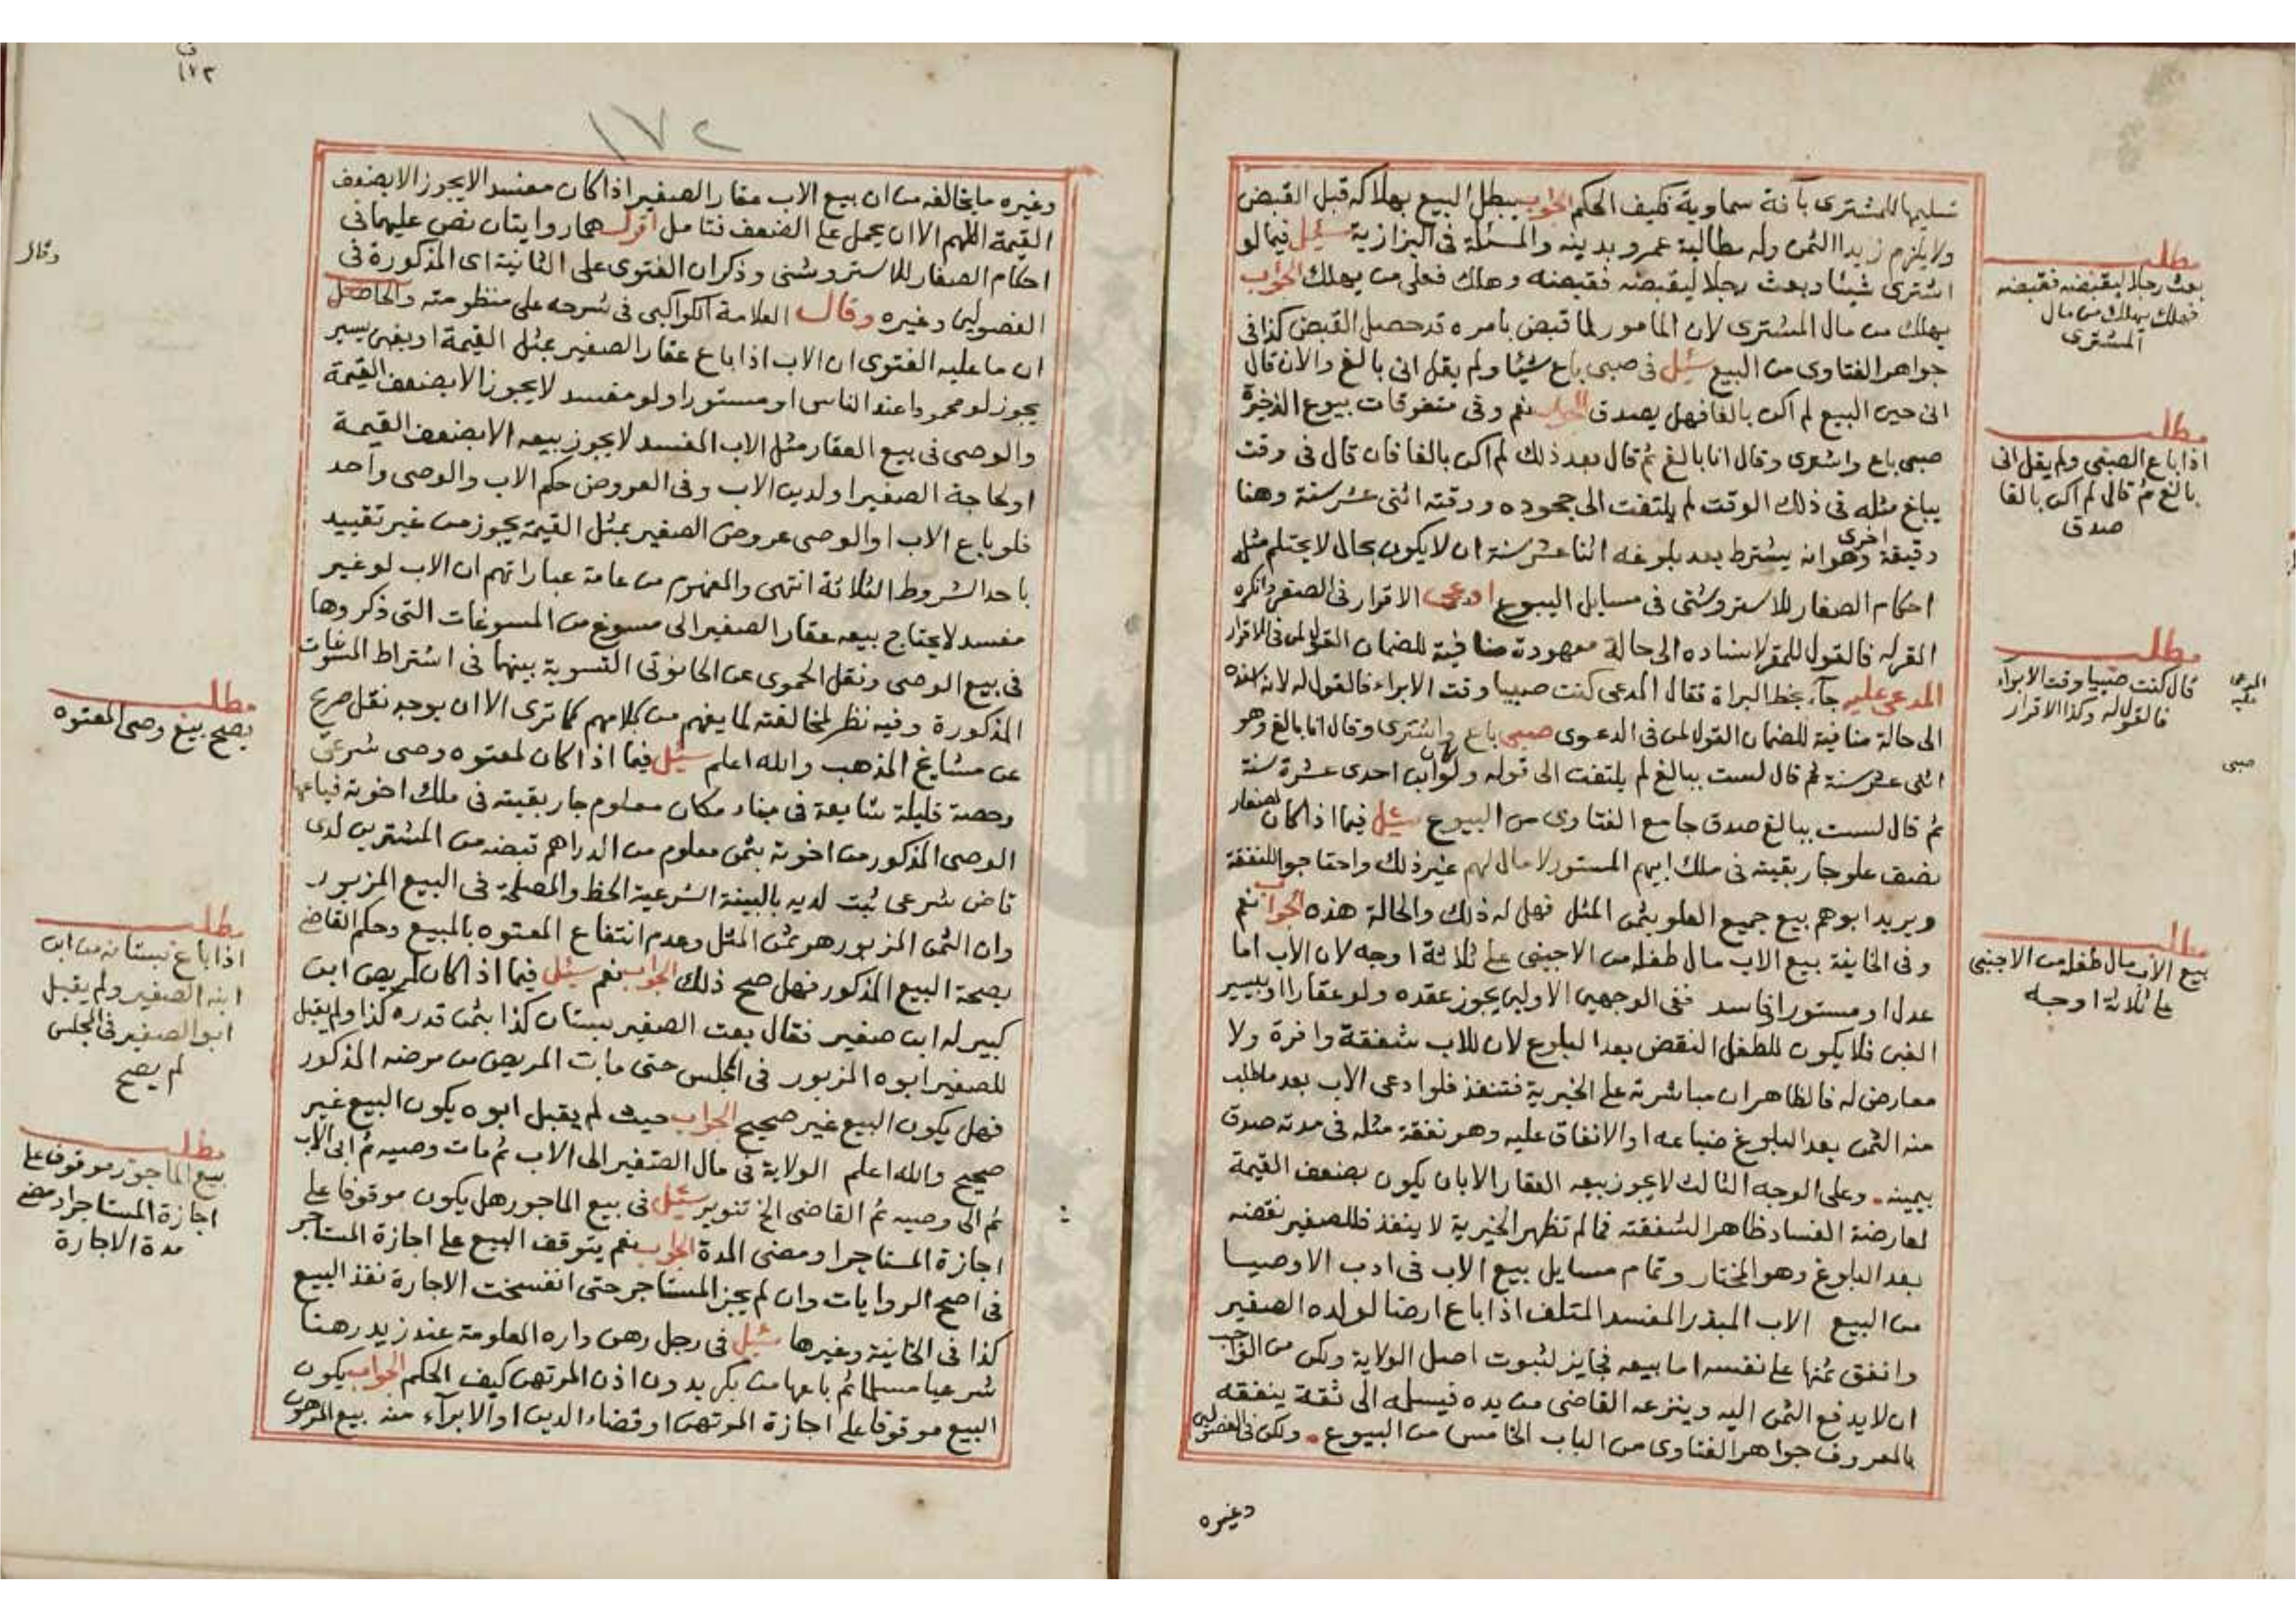 تسليمها للمشترى بآفة سماوية فكيف الحكم الجواب يبطل البيع بهلاكه قبل القبض
ولا يلزم زيدا الثمن وله مطالبة عمرو بدينه والمسئلة فى البزازية سئل فيما لو
اشترى شيئا وبعث رجلا ليقبضه فقبضه وهلك فعلى من يهلك الجواب
يهلك من مال المشترى لان المامور لما قبض بامره قد حصل القبض كذا فى
جواهر الفتاوى من البيع سئل فى صبى باع شيئا ولم يقل انى بالغ والان قال
انى حين البيع لم اكن بالغا فهل يصدق الجواب نعم وفى متفرقات بيوع الذخيرة
صبى باع واشترى وقال انا بالغ ثم قال بعد ذلك لم اكن بالغا فان قال فى وقت
يبلغ مثله فى ذلك الوقت لم يلتفت الى جحوده ووقته اثنى عشر سنة وهنا
دقيقة اخرى وهو انه يشترط بعد بلوغه اثنا عشر سنة ان لا يكون بحال لا يحتلم مثله
احكام الصغار للاستروشنى فى مسايل البيوع ادعى الاقرار فى الصغر وانكره
المقرله فالقول للمقر لاسناده الى حالة معهودة منافية للضمان القول لمن فى الاقرار
المدعى عليه جآء بخط البراة فقال المدعى كنت صبيا وقت الابراء فالقول له لانه اسنده
الى حالة منافية للضمان القول لمن فى الدعوى صبى باع واشترى وقال انا بالغ وهو
اثنى عشر سنة ثم قال لست ببالغ لم يلتفت الى قوله ولو كان ابن احدى عشرة سنة
ثم قال لست ببالغ صدق جامع الفتاوى من البيوع سئل فيما اذا كان لصغار
نصف علو جار بقيته فى ملك ابيهم المستور لا مال لهم غير ذلك واحتاجوا للنفقة
ويريد ابوهم بيع جميع العلو بثمن المثل فهل له ذلك والحالة هذه الجواب نعم
وفى الخانية بيع الاب مال طفله من الاجنبى على ثلاثة اوجه لان الأب اما
عدل او مستور او فاسد ففى الوجهين الاولين يجوز عقده ولو عقارا او بيسير
الغبن فلا يكون للطفل النقض بعد البلوغ لان للاب شفقة وافرة ولا
معارض له فالظاهر ان مباشرته على الخيرية فتنفذ فلو ادعى الاب بعد ما طلب
منه الثمن بعد البلوغ ضياعه او الانفاق عليه وهو نفقة مثله فى مدته صدق
بيمينه . وعلى الوجه الثالث لا يجوز بيعه العقار الا بان يكون بضعف القيمة
لمعارضة الفساد ظاهر الشفقته فما لم تظهر الخيرية لا ينفذ فللصغير نقضه
بعد البلوغ وهو المختار وتمام مسايل بيع الاب فى ادب الاوصيا
من البيع الاب المبذر المفسد المتلف اذا باع ارضا لولده الصغير
وانفق ثمنها على نفسه اما بيعه فجايز لثبوت اصل الولاية ولكن من الواجب
ان لا يدفع الثمن اليه وينزعه القاضى من يده فيسلمه الى ثقة ينفقه
بالمعروف جواهر الفتاوى من الباب الخامس من البيوع . ولكن فى الفصولين
وغيره
مطلب
بعث رجلا ليقبضه فقبضه
فهلك يهلك من مال
المشترى
مطلب
اذا باع الصبى ولم يقل انى
بالغ ثم قال لم اكن بالغا
صدق
مطلب
قال كنت صبيا وقت الابراء
فالقول له وكذا الاقرار
المدعى
عليه
صبى
مطلب
بيع الاب مال طفله من الاجنبى
على ثلاثة اوجه
١٧٢
١٧٢
وغيره ما يخالفه من ان بيع الاب عقار الصغير اذا كان مفسدا لا يجوز الا بضعف
القيمة اللهم الا ان يحمل على الضعف فتامل اقول هما روايتان نص عليهما فى
احكام الصغار للاستروشنى وذكر ان الفتوى على الثانية اى المذكورة فى
الفصولين وغيره وقال العلامة الكواكبى فى شرحه على منظومته والحاصل
ان ما عليه الفتوى ان الاب اذا باع عقار الصغير بمثل القيمة او بغبن يسير
يجوز لو محمودا عند الناس او مستورا ولو مفسد لا يجوز الا بضعف القيمة
والوصى فى بيع العقار مثل الاب المفسد لا يجوز بيعه الا بضعف القيمة
او لحاجة الصغير او لدين الاب وفى العروض حكم الاب والوصى واحد
فلو باع الاب او الوصى عروض الصغير بمثل القيمة يجوز من غير تقييد
باحد الشروط الثلاثة انتهى والمفهوم من عامة عباراتهم ان الاب لو غير
مفسد لا يحتاج بيعه عقار الصغير الى مسوغ من المسوغات التى ذكروها
فى بيع الوصى ونقل الحموى عن الحانوتى التسوية بينهما فى اشتراط المسوغات
المذكورة وفيه نظر لمخالفته لما يفهم من كلامهم كما ترى الا ان يوجد نقل صريح
عن مشايخ المذهب والله اعلم سئل فيما اذا كان لمعتوه وصى شرعى
وحصة قليلة شايعة فى بناء مكان معلوم جار بقيته فى ملك اخوته فباعها
الوصى المذكور من اخوته بثمن معلوم من الدراهم قبضه من المشترين لدى
قاض شرعى ثبت لديه بالبينة الشرعية الحظ والمصلحة فى البيع المزبور
وان الثمن المزبور هو ثمن المثل وعدم انتفاع المعتوه بالمبيع وحكم القاضى
بصحة البيع المذكور فهل صح ذلك الجواب نعم سئل فيما اذا كان لمريض ابن
كبير له ابن صغير فقال بعت الصغير بستان كذا بثمن قدره كذا ولم يقبل
للصغير ابوه المزبور فى المجلس حتى مات المريض من مرضه المذكور
فهل يكون البيع غير صحيح الجواب حيث لم يقبل ابوه يكون البيع غير
صحيح والله اعلم الولاية فى مال الصغير الى الاب ثم مات وصيه ثم ابى الاب
ثم الى وصيه ثم القاضى الخ تنوير سئل فى بيع الماجور هل يكون موقوفا على
اجازة المستاجر او مضى المدة الجواب نعم يتوقف البيع على اجازة المستاجر
فى اصح الروايات وان لم يجز المستاجر حتى انفسخت الاجارة نفذ البيع
كذا فى الخانية وغيرها سئل فى رجل رهن داره المعلومة عند زيد رهنا
شرعيا مسلما ثم باعها من بكر بدون اذن المرتهن كيف الحكم الجواب يكون
البيع موقوفا على اجازة المرتهن او قضاء الدين او الابرآء منه بيع المرهون
وقال
مطلب
يصح بيع وصى المعتوه
مطلب
اذا باع بستانه من ابن
ابنه الصغير ولم يقبل
ابو الصغير فى المجلس
لم يصح
مطلب
بيع الماجور موقوف على
اجازة المستاجر او مضى
مدة الاجارة